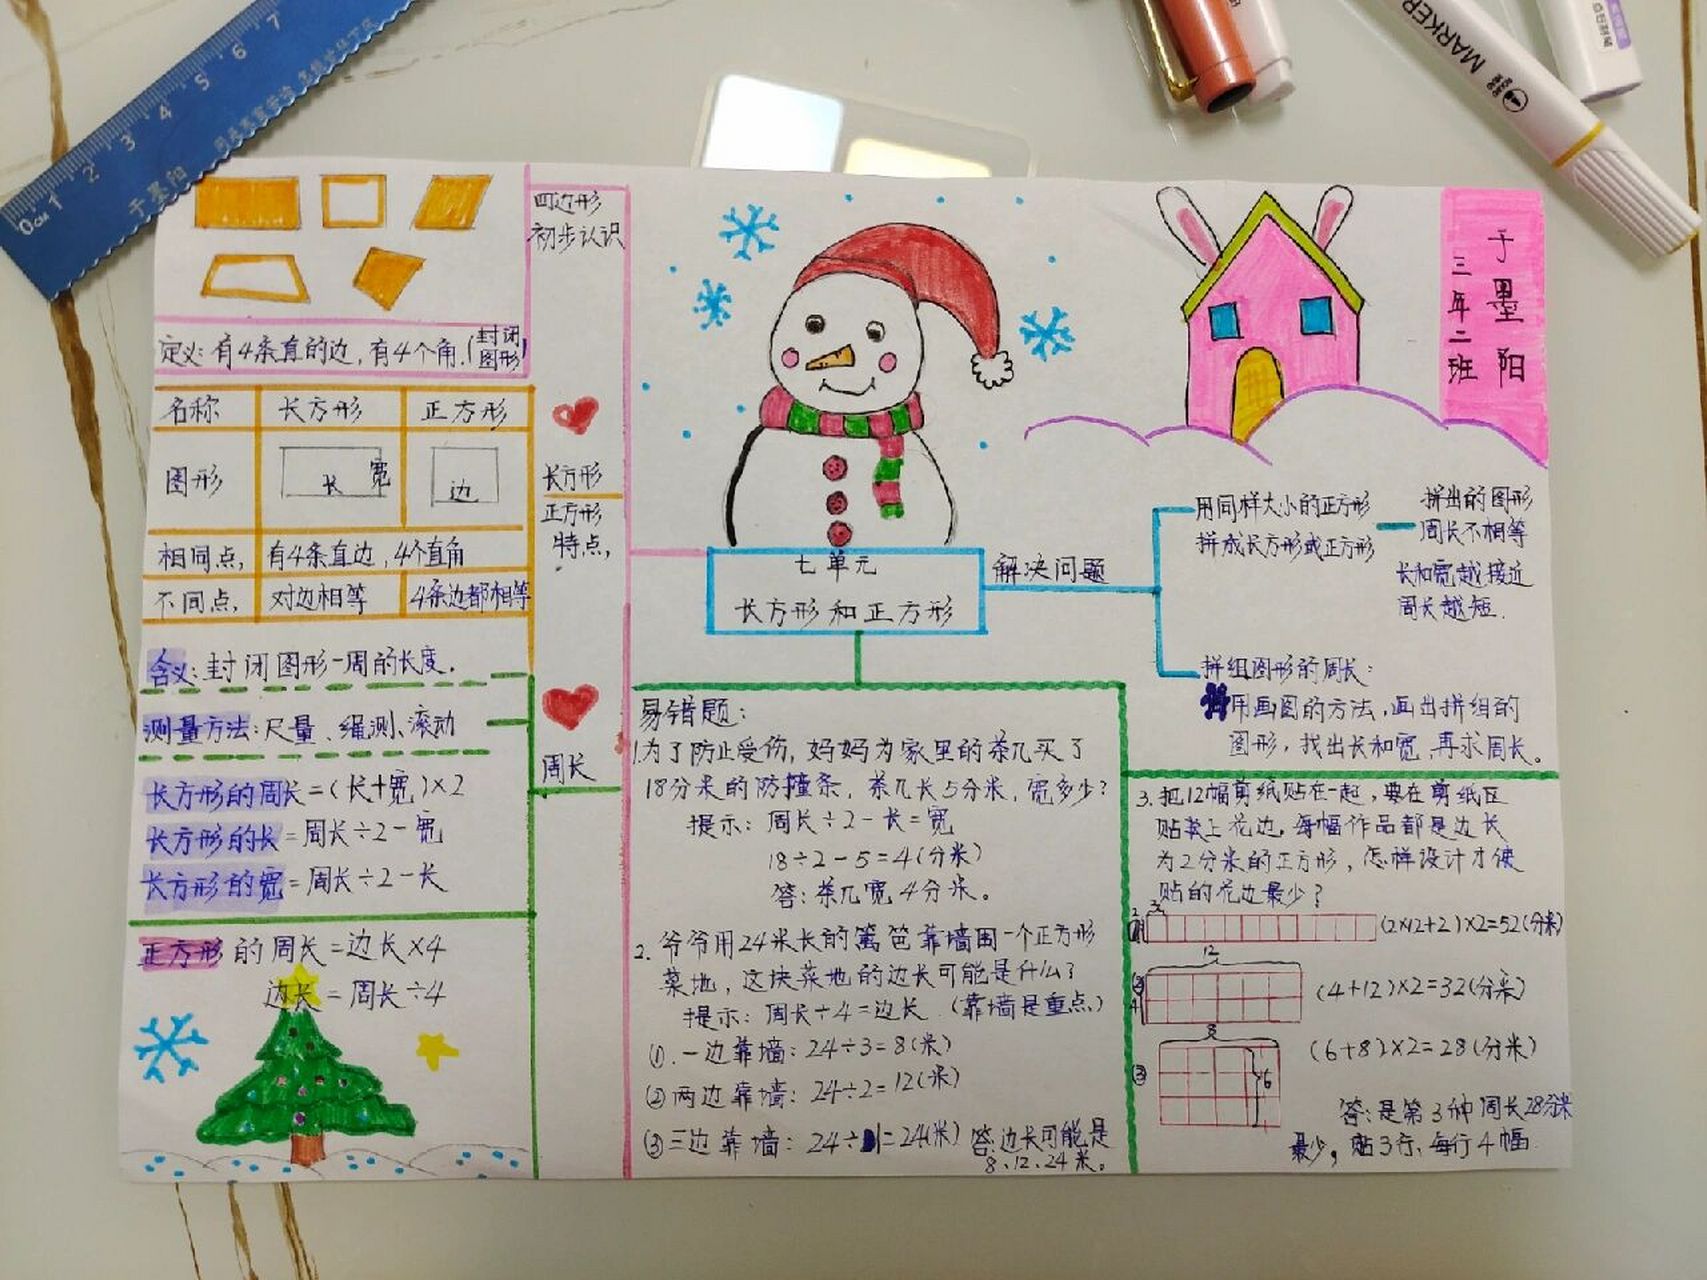 0cm 1 2 3 4 5 6 7
于墨阳
MARKER
四边形
初步认识
定义:有4条直的边,有4个角.(封闭图形)
名称 长方形 正方形
图形 长 宽 边
相同点, 有4条直边,4个直角
不同点, 对边相等 4条边都相等
长方形
正方形
特点,
含义:封闭图形一周的长度.
测量方法:尺量、绳测、滚动
周长
长方形的周长=(长+宽)×2
长方形的长=周长÷2-宽
长方形的宽=周长÷2-长
正方形的周长=边长×4
边长=周长÷4
于墨阳
三年二班
七单元
长方形和正方形
解决问题
用同样大小的正方形
拼成长方形或正方形
拼出的图形
周长不相等
长和宽越接近
周长越短.
拼组图形的周长:
用画图的方法,画出拼组的
图形,找出长和宽,再求周长。
易错题:
1.为了防止受伤,妈妈为家里的茶几买了
18分米的防撞条,茶几长5分米,宽多少?
提示:周长÷2-长=宽
18÷2-5=4(分米)
答:茶几宽4分米。
2.爷爷用24米长的篱笆靠墙围一个正方形
菜地,这块菜地的边长可能是什么?
提示:周长÷4=边长.(靠墙是重点)
①.一边靠墙:24÷3=8(米)
②两边靠墙:24÷2=12(米)
③三边靠墙:24÷1=24(米) 答:边长可能是
8、12、24米。
3.把12幅剪纸贴在一起,要在剪纸区
贴上花边,每幅作品都是边长
为2分米的正方形,怎样设计才使
贴的花边最少?
(2×12+2)×2=52(分米)
12
② 4
(4+12)×2=32(分米)
8
③ 6
(6+8)×2=28(分米)
答:是第3种周长28分米
最少,贴3行,每行4幅.